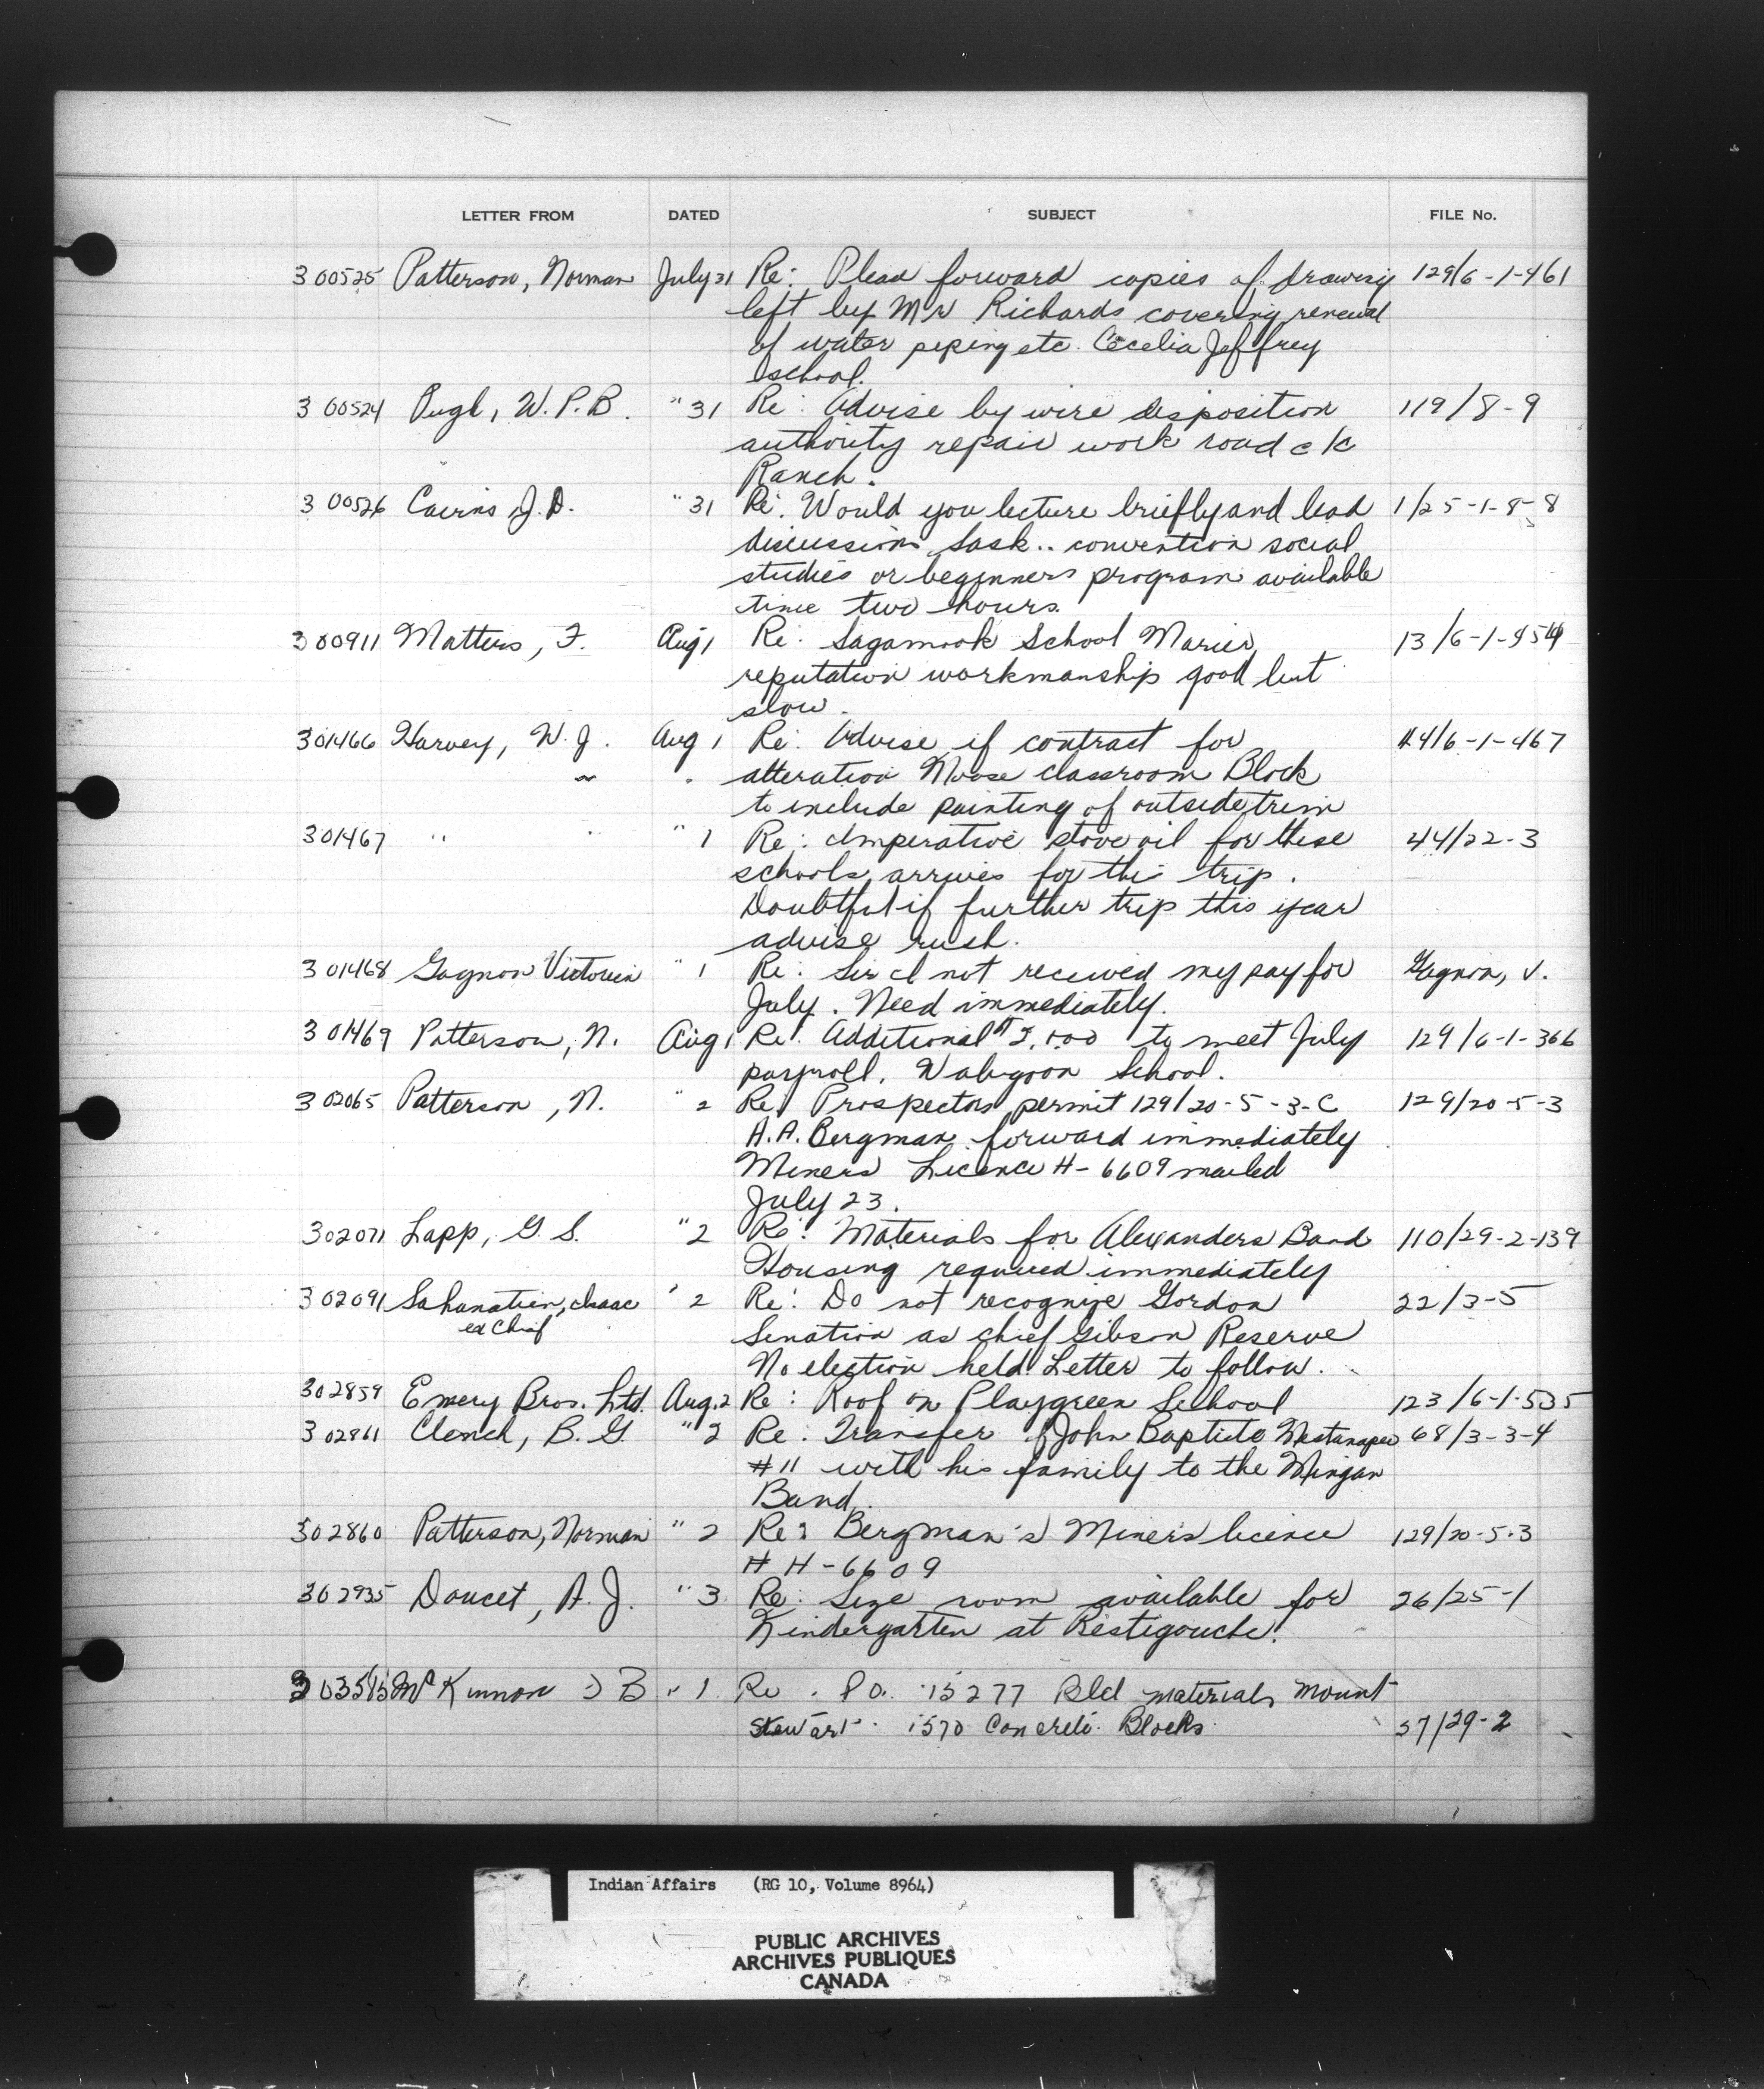 LETTER FROM DATED SUBJECT FILE No.
300525 Patterson, Norman July 31 Re: Plead forward copies of drawing 129/6-1-461
left by Mr Richards covering renewal
of water piping etc. Cecelia Jeffrey
school.
300524 Pugh, W. P. B. " 31 Re: Advise by wire disposition 119/8-9
authority repair work road c K
Ranch.
300526 Cairns J. D. " 31 Re: Would you lecture briefly and lead 1/25-1-8-8
discussions Sask.. convention social
studies or beginners program available
time two hours.
300911 Matters, F. Aug 1 Re: Sagamook School Maries 13/6-1-454
reputation workmanship good but
slow.
301466 Harvey, W. J. Aug 1 Re: Advise if contract for 44/6-1-467
alteration Moose classroom Block
to include painting of outside trim
301467 " " " 1 Re: Imperative stove oil for these 44/22-3
schools arrives for this trip.
Doubtful if further trip this year
advise rush.
301468 Gagnon Victoria " 1 Re: Sir I not received my pay for Gagnon, V.
July. Need immediately.
301469 Patterson, N. Aug 1 Re: Additional to meet July 129/6-1-366
payroll. Wabigoon School.
302065 Patterson, N. " 2 Re: Prospectors permit 129/20-5-3-C 129/20-5-3
H. A. Bergman forward immediately
Miners Licence H-6609 mailed
July 23.
302071 Lapp, G. S. " 2 Re: Materials for Alexanders Band 110/29-2-139
Housing required immediately
302091 Sahanatien, Isaac " 2 Re: Do not recognize Gordon 22/3-5
ex Chief Senation as chief Gibson Reserve
No election held. Letter to follow.
302859 Emery Bros. Ltd. Aug. 2 Re: Roof on Playgreen School 123/6-1-535
302861 Clench, B. G. " 2 Re: Transfer of John Baptiste 68/3-3-4
#11 with his family to the Mingan
Band.
302860 Patterson, Norman " 2 Re: Bergman's Miners licence 129/20-5-3
# H-6609
302935 Doucet, A. J. " 3 Re: Size room available for 26/25-1
Kindergarten at Restigouche.
303515 McKinnon J B " 1 Re. P O. 15277 Bld materials Mount
Stewart. 1570 Concrete Blocks. 37/29-2
Indian Affairs (RG 10, Volume 8964)
PUBLIC ARCHIVES
ARCHIVES PUBLIQUES
CANADA